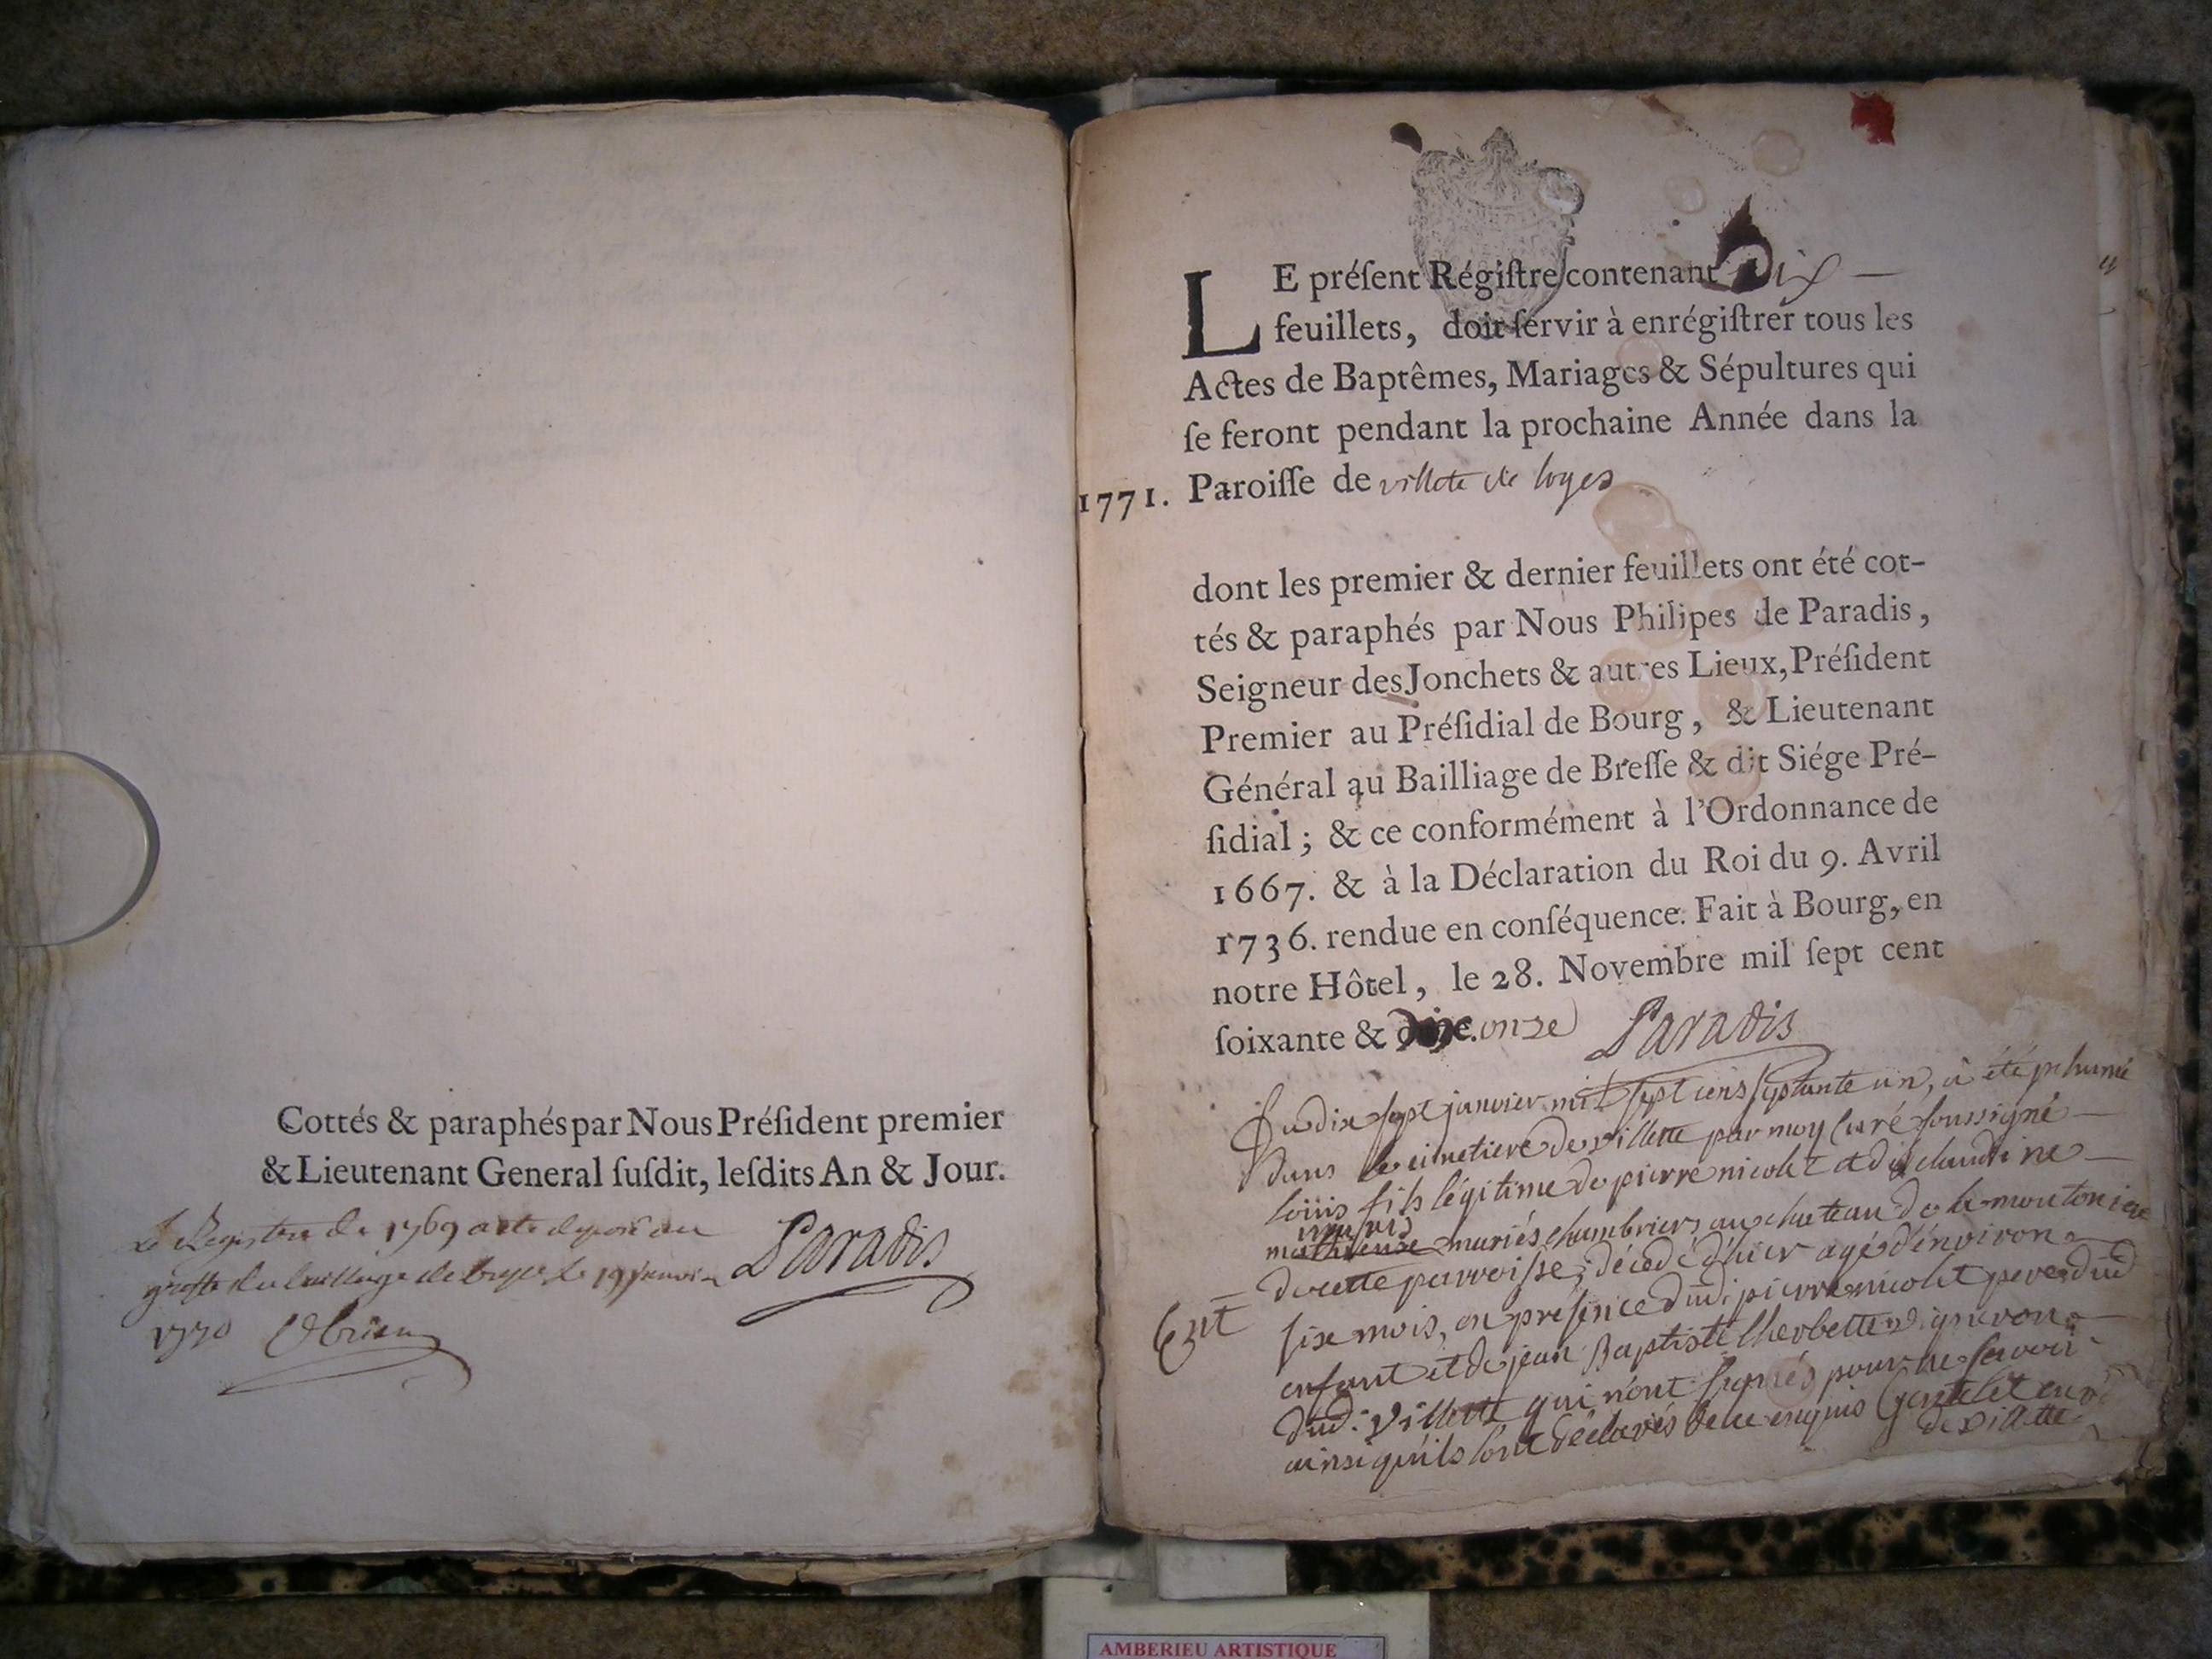 Cottés & paraphés par Nous Préſident premier
& Lieutenant General ſuſdit, leſdits An & Jour.
Le Registre de 1769 a été déposé au
greffe du bailliage de le 19 janvier
1770
Paradis
LE préſent Régiſtre contenant Dix
feuillets, doit ſervir à enrégiſtrer tous les
Actes de Baptêmes, Mariages & Sépultures qui
ſe feront pendant la prochaine Année dans la
1771. Paroiſſe de villete de loyes
dont les premier & dernier feuillets ont été cot-
tés & paraphés par Nous Philipes de Paradis,
Seigneur des Jonchets & autres Lieux, Préſident
Premier au Préſidial de Bourg, & Lieutenant
Général au Bailliage de Breſſe & dit Siége Pré-
ſidial; & ce conformément à l'Ordonnance de
1667. & à la Déclaration du Roi du 9. Avril
1736. rendue en conſéquence. Fait à Bourg, en
notre Hôtel, le 28. Novembre mil ſept cent
ſoixante & onze Paradis
Du dix sept janvier mil sept cens septante un, a été inhumé
dans le cimetiere de villette par moy curé soussigné
loüis fils légitime de pierre nicolet et de claudine
mariés chambriers au chateau de la moutoniere
de cette parroisse, décedé d'hier agé d'environ
Ent six mois, en présence dud. pierre nicolet pere dud
enfant et de jean Baptiste lherbette vigneron
dud. villette qui n'ont signés pour ne savoir
ainsi qu'ils l'ont déclarés de ce enquis Gentelet curé
de villette
AMBERIEU ARTISTIQUE